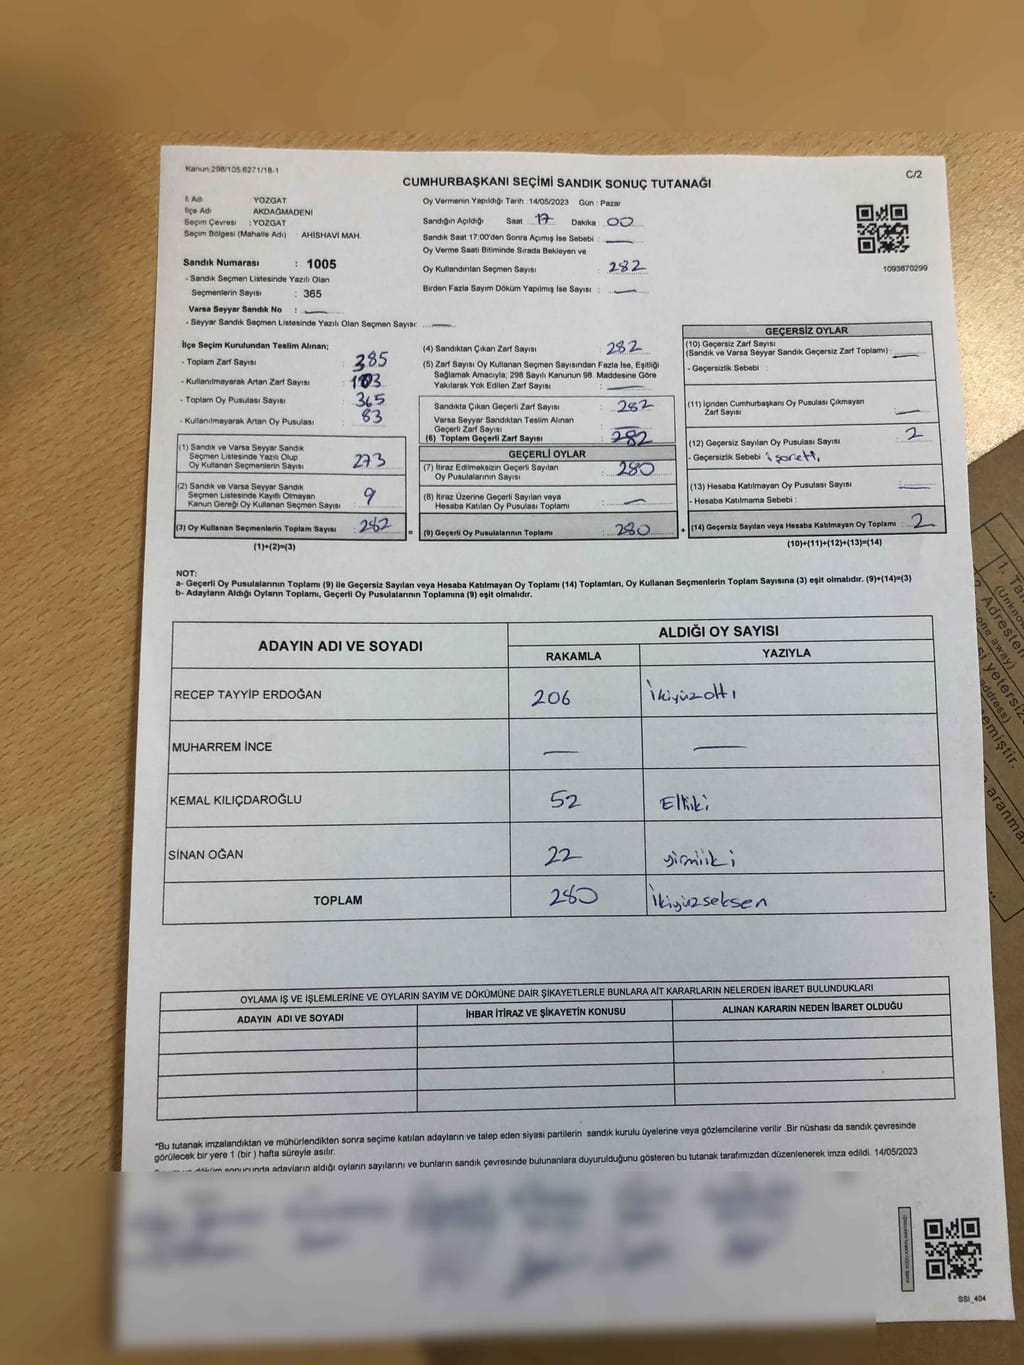 Kanun:298/105,6271/18-1
C/2
CUMHURBAŞKANI SEÇİMİ SANDIK SONUÇ TUTANAĞI
İl Adı YOZGAT
İlçe Adı AKDAĞMADENİ
Seçim Çevresi : YOZGAT
Seçim Bölgesi (Mahalle Adı) : AHISHAVİ MAH.
Sandık Numarası : 1005
- Sandık Seçmen Listesinde Yazılı Olan
Seçmenlerin Sayısı : 365
Varsa Seyyar Sandık No : —
- Seyyar Sandık Seçmen Listesinde Yazılı Olan Seçmen Sayısı: —
Oy Vermenin Yapıldığı Tarih : 14/05/2023 Gün : Pazar
Sandığın Açıldığı Saat : 17 Dakika : 00
Sandık Saat 17:00'den Sonra Açımış İse Sebebi : —
Oy Verme Saati Bitiminde Sırada Bekleyen ve
Oy Kullandırılan Seçmen Sayısı : 282
Birden Fazla Sayım Döküm Yapılmış İse Sayısı : —
1093870299
İlçe Seçim Kurulundan Teslim Alınan;
- Toplam Zarf Sayısı : 385
- Kullanılmayarak Artan Zarf Sayısı : 103
- Toplam Oy Pusulası Sayısı : 365
- Kullanılmayarak Artan Oy Pusulası : 83
(1) Sandık ve Varsa Seyyar Sandık
Seçmen Listesinde Yazılı Olup
Oy Kullanan Seçmenlerin Sayısı 273
(2) Sandık ve Varsa Seyyar Sandık
Seçmen Listesinde Kayıtlı Olmayan
Kanun Gereği Oy Kullanan Seçmen Sayısı 9
(3) Oy Kullanan Seçmenlerin Toplam Sayısı : 282
(1)+(2)=(3)
(4) Sandıktan Çıkan Zarf Sayısı : 282
(5) Zarf Sayısı Oy Kullanan Seçmen Sayısından Fazla İse, Eşitliği
Sağlamak Amacıyla; 298 Sayılı Kanunun 98. Maddesine Göre
Yakılarak Yok Edilen Zarf Sayısı : —
Sandıkta Çıkan Geçerli Zarf Sayısı : 282
Varsa Seyyar Sandıktan Teslim Alınan
Geçerli Zarf Sayısı : —
(6) Toplam Geçerli Zarf Sayısı : 282
GEÇERLİ OYLAR
(7) İtiraz Edilmeksizin Geçerli Sayılan
Oy Pusulasının Sayısı : 280
(8) İtiraz Üzerine Geçerli Sayılan veya
Hesaba Katılan Oy Pusulası Toplamı : —
= (9) Geçerli Oy Pusulalarının Toplamı : 280 +
GEÇERSİZ OYLAR
(10) Geçersiz Zarf Sayısı
(Sandık ve Varsa Seyyar Sandık Geçersiz Zarf Toplamı) : —
- Geçersizlik Sebebi :
(11) İçinden Cumhurbaşkanı Oy Pusulası Çıkmayan
Zarf Sayısı : —
(12) Geçersiz Sayılan Oy Pusulası Sayısı : 2
- Geçersizlik Sebebi : işaretli
(13) Hesaba Katılmayan Oy Pusulası Sayısı : —
- Hesaba Katılmama Sebebi :
(14) Geçersiz Sayılan veya Hesaba Katılmayan Oy Toplamı : 2
(10)+(11)+(12)+(13)=(14)
NOT:
a- Geçerli Oy Pusulalarının Toplamı (9) ile Geçersiz Sayılan veya Hesaba Katılmayan Oy Toplamı (14) Toplamları, Oy Kullanan Seçmenlerin Toplam Sayısına (3) eşit olmalıdır. (9)+(14)=(3)
b- Adayların Aldığı Oyların Toplamı, Geçerli Oy Pusulalarının Toplamına (9) eşit olmalıdır.
ADAYIN ADI VE SOYADI ALDIĞI OY SAYISI
RAKAMLA YAZIYLA
RECEP TAYYİP ERDOĞAN 206 ikiyüzaltı
MUHARREM İNCE — —
KEMAL KILIÇDAROĞLU 52 Elliiki
SİNAN OĞAN 22 yirmiiki
TOPLAM 280 ikiyüzseksen
OYLAMA İŞ VE İŞLEMLERİNE VE OYLARIN SAYIM VE DÖKÜMÜNE DAİR ŞİKAYETLERLE BUNLARA AİT KARARLARIN NELERDEN İBARET BULUNDUKLARI
ADAYIN ADI VE SOYADI İHBAR İTİRAZ VE ŞİKAYETİN KONUSU ALINAN KARARIN NEDEN İBARET OLDUĞU
*Bu tutanak imzalandıktan ve mühürlendikten sonra seçime katılan adayların ve talep eden siyasi partilerin sandık kurulu üyelerine veya gözlemcilerine verilir .Bir nüshası da sandık çevresinde
görülecek bir yere 1 (bir ) hafta süreyle asılır.
döküm sonucunda adayların aldığı oyların sayılarını ve bunların sandık çevresinde bulunanlara duyurulduğunu gösteren bu tutanak tarafımızdan düzenlenerek imza edildi. 14/05/2023
SSI_404
1. Ta
(Unknow
2. Adresten
one away)
si yetersiz
address)
emiştir.
aranma